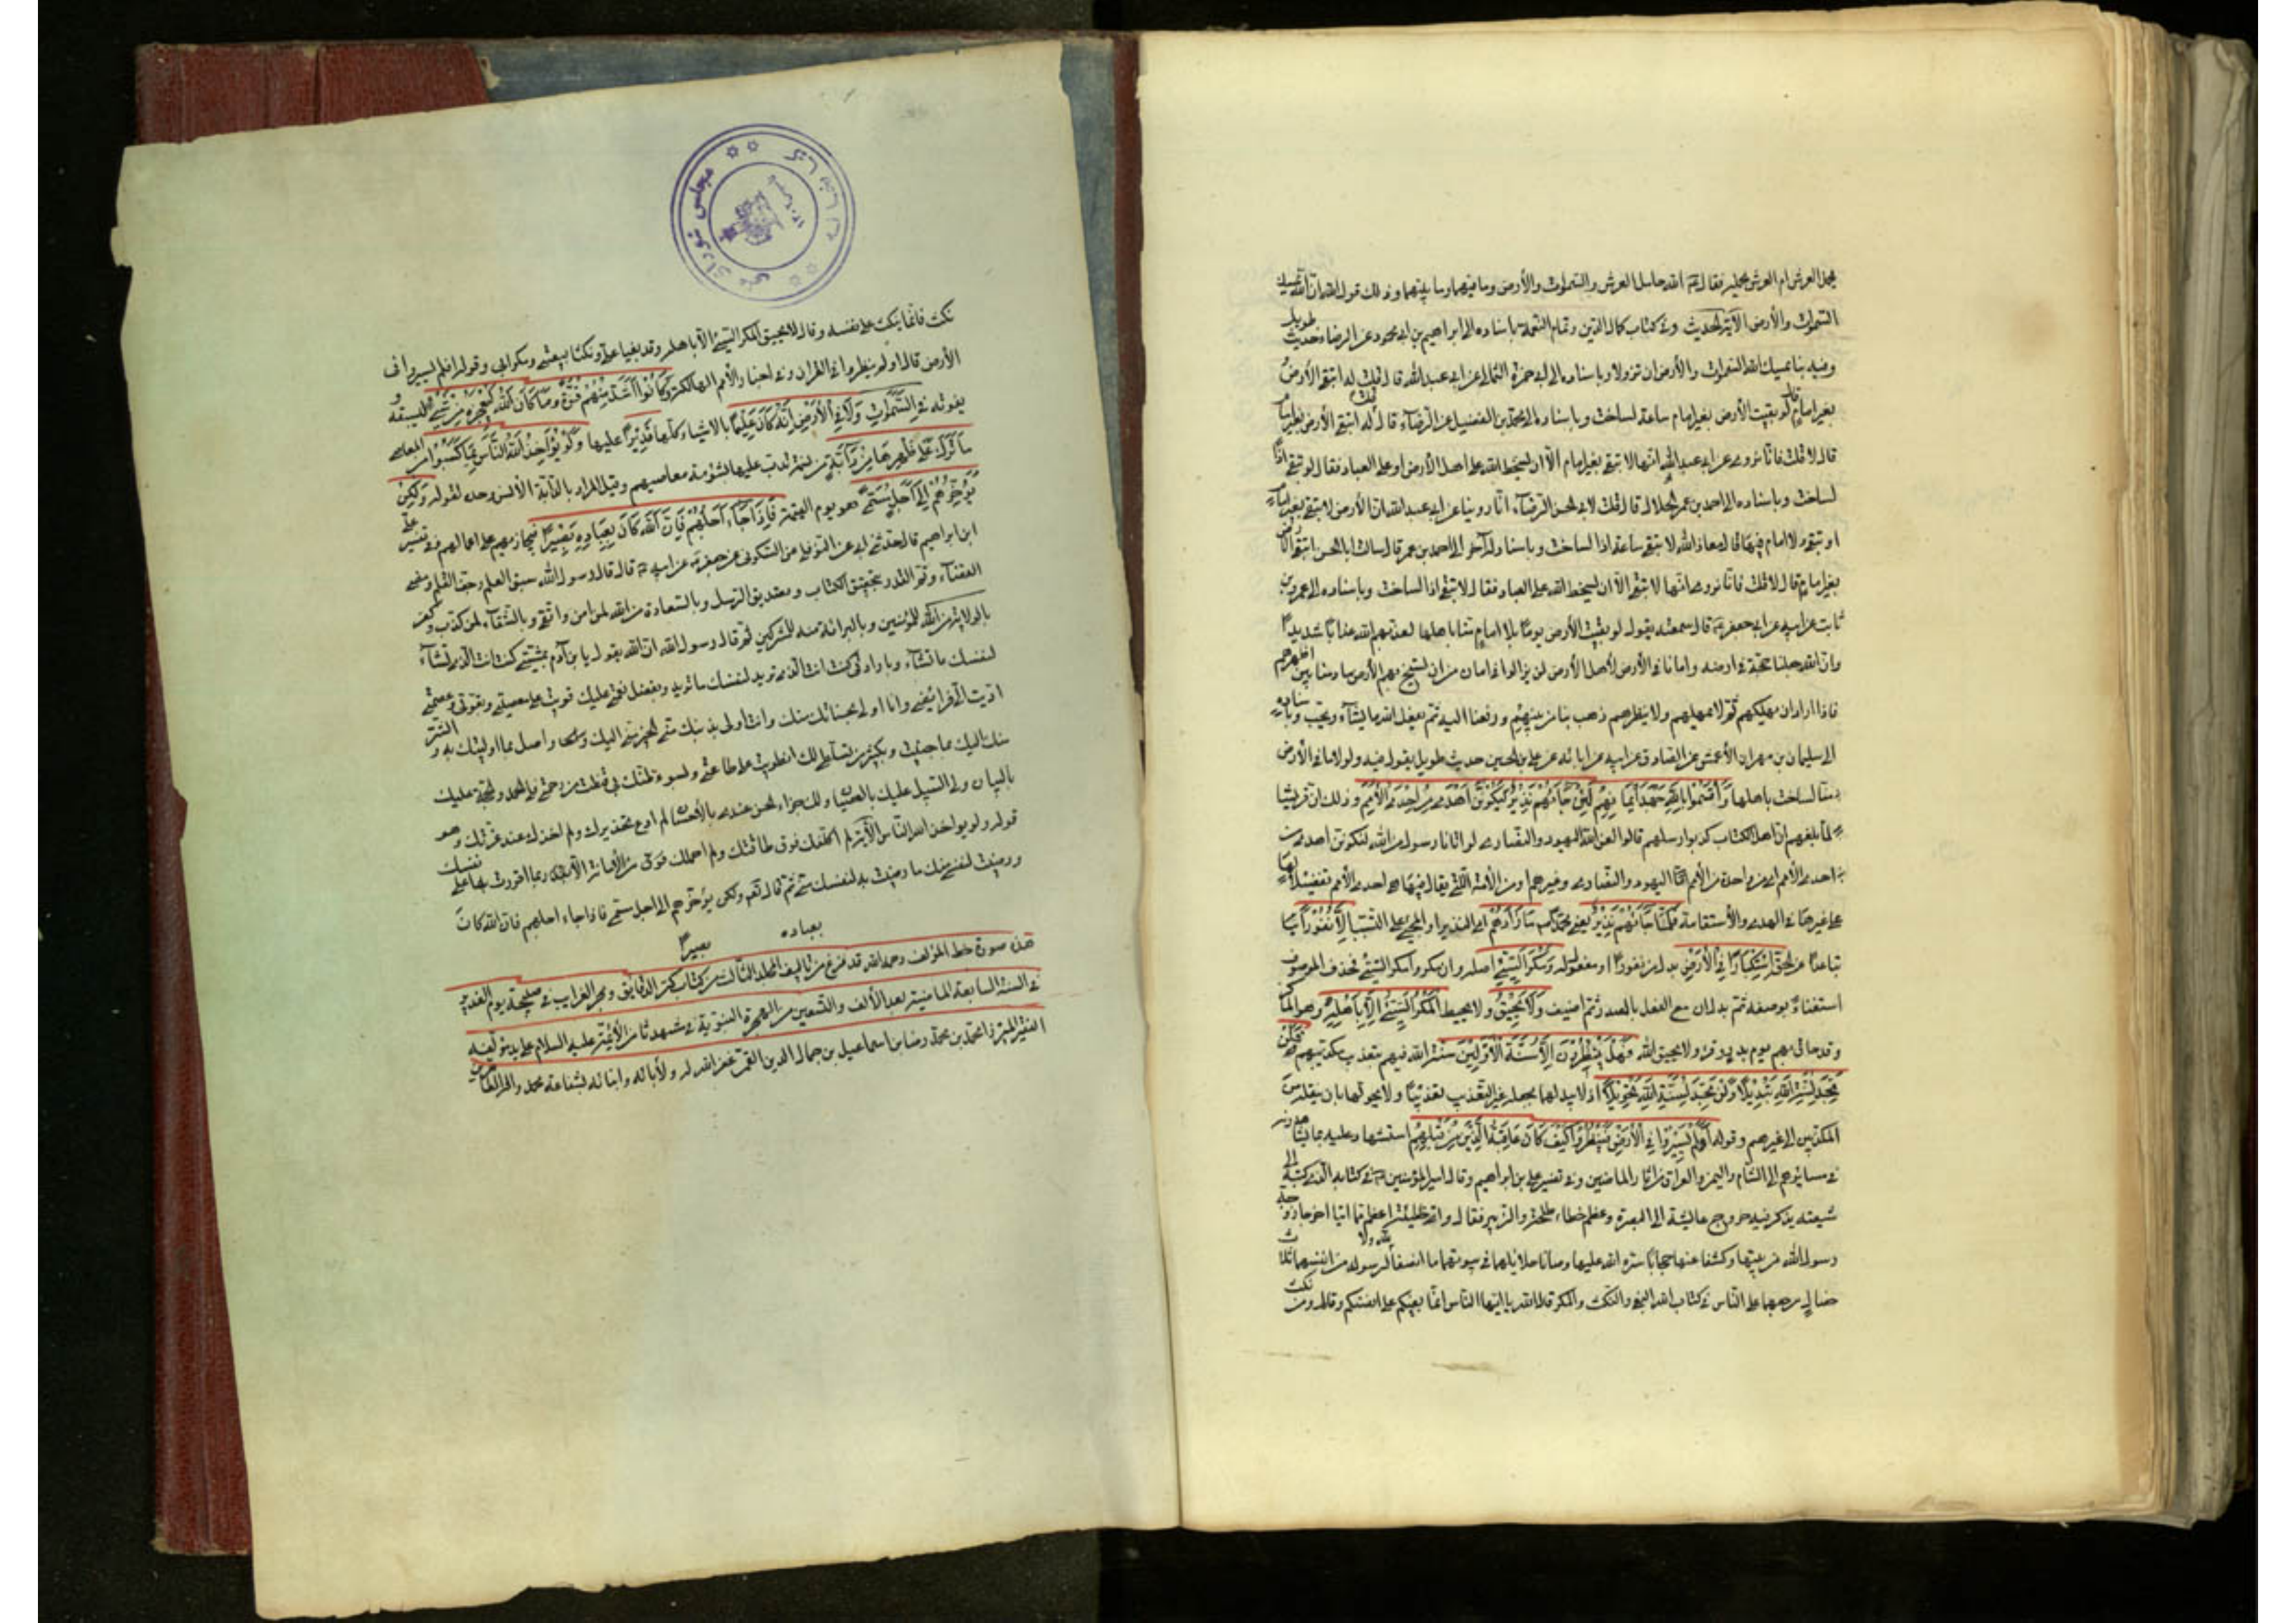 يحمل العرش ام العرش يحمله فقال ع الله حامل العرش والسموات والأرض وما فيهما وما بينهما وذلك قول الله ان الله يمسك
السموات والأرض الآية الحديث وفي كتاب كمال الدين وتمام النعمة باسناده الى ابراهيم بن ابي محمود عن الرضاء حديث طويل
وفيه بنا يمسك الله السموات والأرض ان تزولا وباسناده الى ابي حمزة الثمالي عن ابي عبد الله قال قلت له اتبقى الأرض
بغير امام قال لو بقيت الأرض بغير امام ساعة لساخت وباسناده الى محمد بن الفضيل عن الرضاء قال قلت له اتبقى الأرض بغير امام
قال لا قلت فانا نروي عن ابي عبد الله انها لا تبقى بغير امام الا ان يسخط الله على اهل الأرض او على العباد فقال لا تبقى اذا
لساخت وباسناده الى احمد بن عمر الحلال قال قلت لابي الحسن الرضاء انا روينا عن ابي عبد الله ان الأرض لا تبقى بغير امام
او تبقى ولا امام فيها قال معاذ الله لا تبقى ساعة اذا لساخت وباسناد له آخر الى احمد بن عمر قال سالت ابا الحسن اتبقى الأرض
بغير امام قال لا قلت فانا نروي انها لا تبقى الا ان يسخط الله على العباد فقال لا تبقى اذا لساخت وباسناده الى عمرو بن
ثابت عن ابيه عن ابي جعفر ع قال سمعته يقول لو بقيت الأرض يوما بلا امام منا لساخت باهلها لعذبهم الله عذابا شديدا
وان الله جعلنا حجة في ارضه وامانا في الأرض لأهل الأرض لن يزالوا في امان من ان تسيخ بهم الأرض ما دمنا بين اظهرهم
فاذا اراد ان يهلكهم ثم لا يمهلهم ولا ينظرهم ذهب بنا من بينهم ورفعنا اليه ثم يفعل الله ما يشاء ويحب وباسناده
الى سليمان بن مهران الأعمش عن الصادق عن ابيه عن ابائه عن علي بن الحسين حديث طويل يقول فيه ولولا ما في الأرض
منا لساخت باهلها وَأَقْسَمُوا بِاللَّهِ جَهْدَ أَيْمَانِهِمْ لَئِنْ جَاءَهُمْ نَذِيرٌ لَيَكُونُنَّ أَهْدَى مِنْ إِحْدَى الْأُمَمِ وذلك ان قريشا
لما بلغهم ان اهل الكتاب كذبوا رسلهم قالوا لعن الله اليهود والنصارى لو اتانا رسول من الله لنكونن اهدى من
احدى الأمم اي من واحدة من الأمم اليهود والنصارى وغيرهم او من الأمة التي يقال فيها هي احدى الأمم تفضيلا لها
على غيرها في الهدى والأستقامة فَلَمَّا جَاءَهُمْ نَذِيرٌ يعني محمدا مَا زَادَهُمْ اي النذير او مجيئه على التسبب إِلَّا نُفُورًا
تباعدا عن الحق اسْتِكْبَارًا فِي الْأَرْضِ بدل من نفورا او مفعول له وَمَكْرَ السَّيِّئِ اصله وان مكروا المكر السيئ فحذف الموصوف
استغناء بوصفه ثم بدل ان مع الفعل بالمصدر ثم اضيف وَلَا يَحِيقُ ولا يحيط الْمَكْرُ السَّيِّئُ إِلَّا بِأَهْلِهِ وهو الماكر
وقد حاق بهم يوم بدر فَهَلْ يَنْظُرُونَ إِلَّا سُنَّةَ الْأَوَّلِينَ سنة الله فيهم بتعذيب مكذبيهم فَلَنْ
تَجِدَ لِسُنَّةِ اللَّهِ تَبْدِيلًا وَلَنْ تَجِدَ لِسُنَّةِ اللَّهِ تَحْوِيلًا اذ لا يبدلها بجعله غير التعذيب تعذيبا ولا يحولها بان ينقله من
المكذبين الى غيرهم وقوله أَوَلَمْ يَسِيرُوا فِي الْأَرْضِ فَيَنْظُرُوا كَيْفَ كَانَ عَاقِبَةُ الَّذِينَ مِنْ قَبْلِهِمْ استشهاد عليه بما يشاهدونه
في مسائرهم الى الشام واليمن والعراق من اثار الماضين وفي تفسير علي بن ابراهيم وقال امير المؤمنين ع في كتابه الذي كتبه الى
شيعته يذكر فيه خروج عايشة الى البصرة وعظم خطاء طلحة والزبير فقال واي خطيئة اعظم مما اتيا اخرجا زوجة
رسول الله من بيتها وكشفا عنها حجابا ستره الله عليها وصانا حلائلهما في بيوتهما ما انصفا لا لله ولا لرسوله من انفسهما ثلاث
خصال مرجعها على الناس في كتاب الله البغي والنكث والمكر قال الله يا ايها الناس انما بغيكم على انفسكم وقال ومن نكث
نكث فانما ينكث على نفسه وقال لا يحيق المكر السيئ الا باهله وقد بغيا علي ونكثا بيعتي ومكرا بي وقوله اولم يسيروا في
الأرض قال اولم ينظروا في القران وفي اخبار الأمم الهالكة وَكَانُوا أَشَدَّ مِنْهُمْ قُوَّةً وَمَا كَانَ اللَّهُ لِيُعْجِزَهُ مِنْ شَيْءٍ ليسبقه و
يفوته فِي السَّمَوَاتِ وَلَا فِي الْأَرْضِ إِنَّهُ كَانَ عَلِيمًا بالاشياء كلها قَدِيرًا عليها وَلَوْ يُؤَاخِذُ اللَّهُ النَّاسَ بِمَا كَسَبُوا من المعاصي
مَا تَرَكَ عَلَى ظَهْرِهَا مِنْ دَابَّةٍ من نسمة تدب عليها بشؤم معاصيهم وقيل المراد بالدابة الأنس وحده لقوله وَلَكِنْ
يُؤَخِّرُهُمْ إِلَى أَجَلٍ مُسَمًّى هو يوم القيمة فَإِذَا جَاءَ أَجَلُهُمْ فَإِنَّ اللَّهَ كَانَ بِعِبَادِهِ بَصِيرًا فيجازيهم على اعمالهم وفي تفسير علي
ابن ابراهيم قال حدثني ابي عن النوفلي عن السكوني عن جعفر ع عن ابيه ع قال قال رسول الله سبق العلم وجف القلم ومضى
القضاء وتم القدر بتحقيق الكتاب وتصديق الرسل وبالسعادة من الله لمن امن واتقى وبالشقاء لمن كذب وكفر
بالولاية من الله للمؤمنين وبالبرائة منه للمشركين ثم قال رسول الله ان الله يقول يا بن آدم بمشيتي كنت انت الذي تشاء
لنفسك ما تشاء وبارادتي كنت انت الذي تريد لنفسك ما تريد وبفضل نعمتي عليك قويت على معصيتي وبقوتي وعصمتي
اديت الي فرائضي وانا اولى بحسناتك منك وانت اولى بذنبك مني الخير مني اليك واصل بما اوليتك به والشر
منك اليك بما جنيت وبكثير من تسلطي لك انطويت على طاعتي وبسوء ظنك بي قنطت من رحمتي فلي الحمد والحجة عليك
بالبيان ولي السبيل عليك بالعصيان ولك الجزاء الحسن عندي بالأحسان لم ادع تحذيرك ولم اخذك عند غرتك وهو
قوله ولو يؤاخذ الله الناس الآية لم اكلفك فوق طاقتك ولم احملك من الأمانة الا ما اقررت بها على نفسك
ورضيت لنفسي منك ما رضيت به لنفسك مني ثم قال تع ولكن يؤخرهم الى اجل مسمى فاذا جاء اجلهم فان الله كان
بعباده
بصيرا
هذه صورة خط المؤلف رحمه الله قد فرغ من تاليف المجلد الثالث من كتاب كنز الدقايق وبحر الغرايب في صبيحة يوم الغدير
في السنة السابعة الماضية بعد الألف والتسعين من الهجرة النبوية في مشهد ثامن الأئمة عليه السلام على يد مؤلفه
الفقير ميرزا محمد بن محمد رضا بن اسماعيل بن جمال الدين القمي غفر الله له ولأبائه وابنائه بشفاعة محمد واله الطاهرين
مجلس شورای ملی